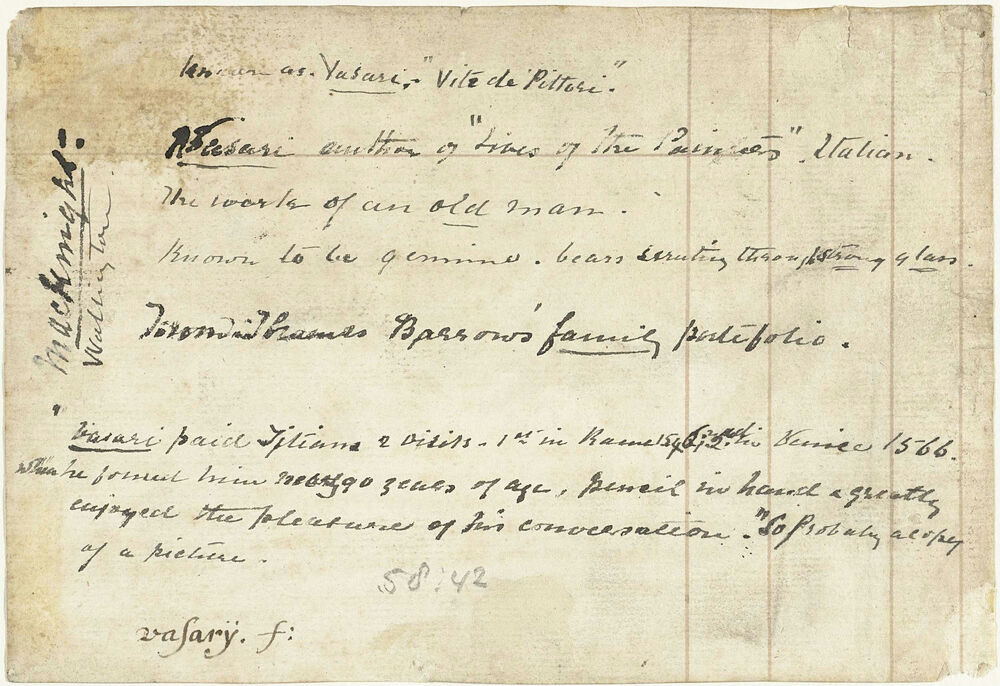 known as Vasari, "Vite de Pittori."
Vasari author of "Lives of the Painters". Italian.
The work of an old man.
Known to be genuine. bears scrutiny through strong glass.
From Thomas Barrow's family portefolio.
Macknight:
Wallington
"Vasari paid Titian 2 visits. 1st in Rome 1546; 2nd in Venice 1566.
when he found him near 90 years of age, pencil in hand & greatly
enjoyed the pleasure of his conversation." So probably a copy
of a picture.
58:42
vasarÿ. f: